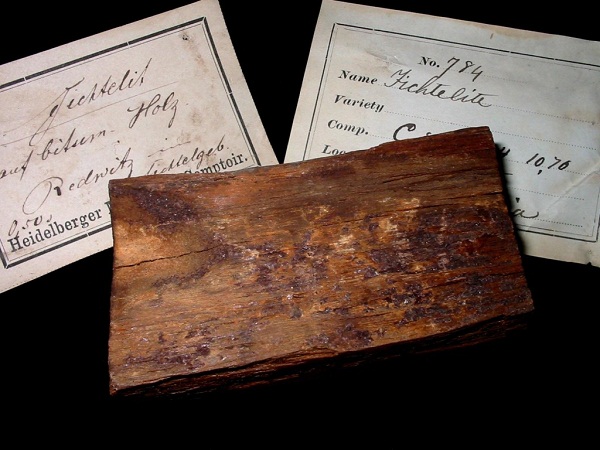 Fichtelit
auf bitum. Holz.
Redwitz Fichtelgeb
0,50 s
Heidelberger Comptoir.
No. 784
Name Fichtelite
Variety
Comp. C
10,70